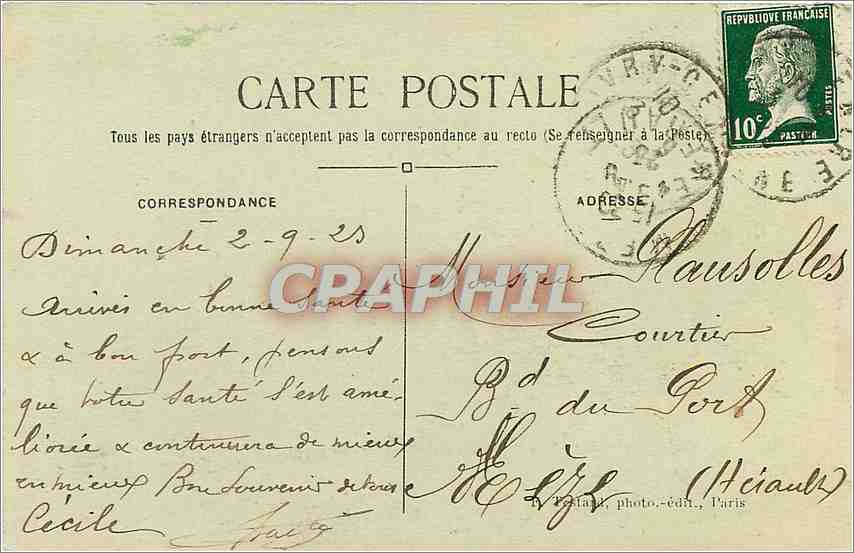 REPVBLIQUE FRANÇAISE
10c
POSTES
PASTEUR
CARTE POSTALE
Tous les pays étrangers n'acceptent pas la correspondance au recto (Se renseigner à la Poste)
CORRESPONDANCE
ADRESSE
Dimanche 2-9-23
Arrivés en bonne santé
& à bon port, pensons
que votre santé s'est amé-
liorée & continuera de mieux
en mieux Bon Souvenir de tous
Cécile
Monsieur Clausolles
Courtier
Bd du Port
Mèze (Hérault)
photo.-édit., Paris
CPRAPHIL